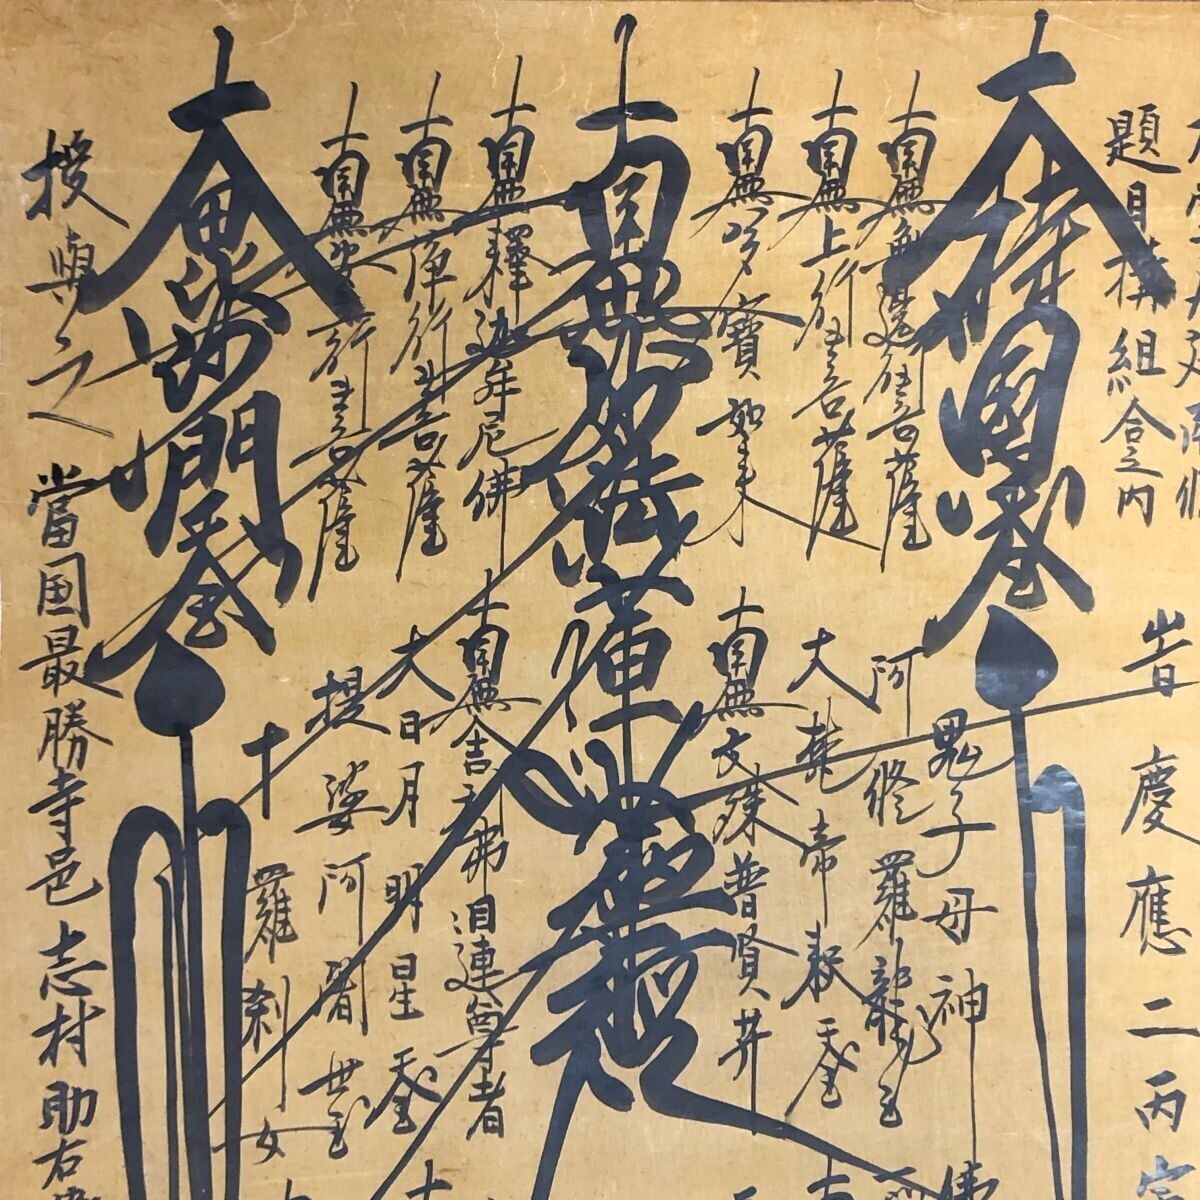 題目構組合之内
旹慶應二丙
大持國天王
南無無邊行菩薩
南無上行菩薩
南無多寶如来
南無妙法蓮華經
南無釋迦牟尼佛
南無浄行菩薩
南無安行菩薩
大毘沙門天王
鬼子母神
阿修羅龍王
大梵帝釈天王
南無文殊普賢井
南無舎利弗目連尊者
大日月明星天王
提婆阿闍世王
十羅刹女
授與之
當国最勝寺邑志村助右